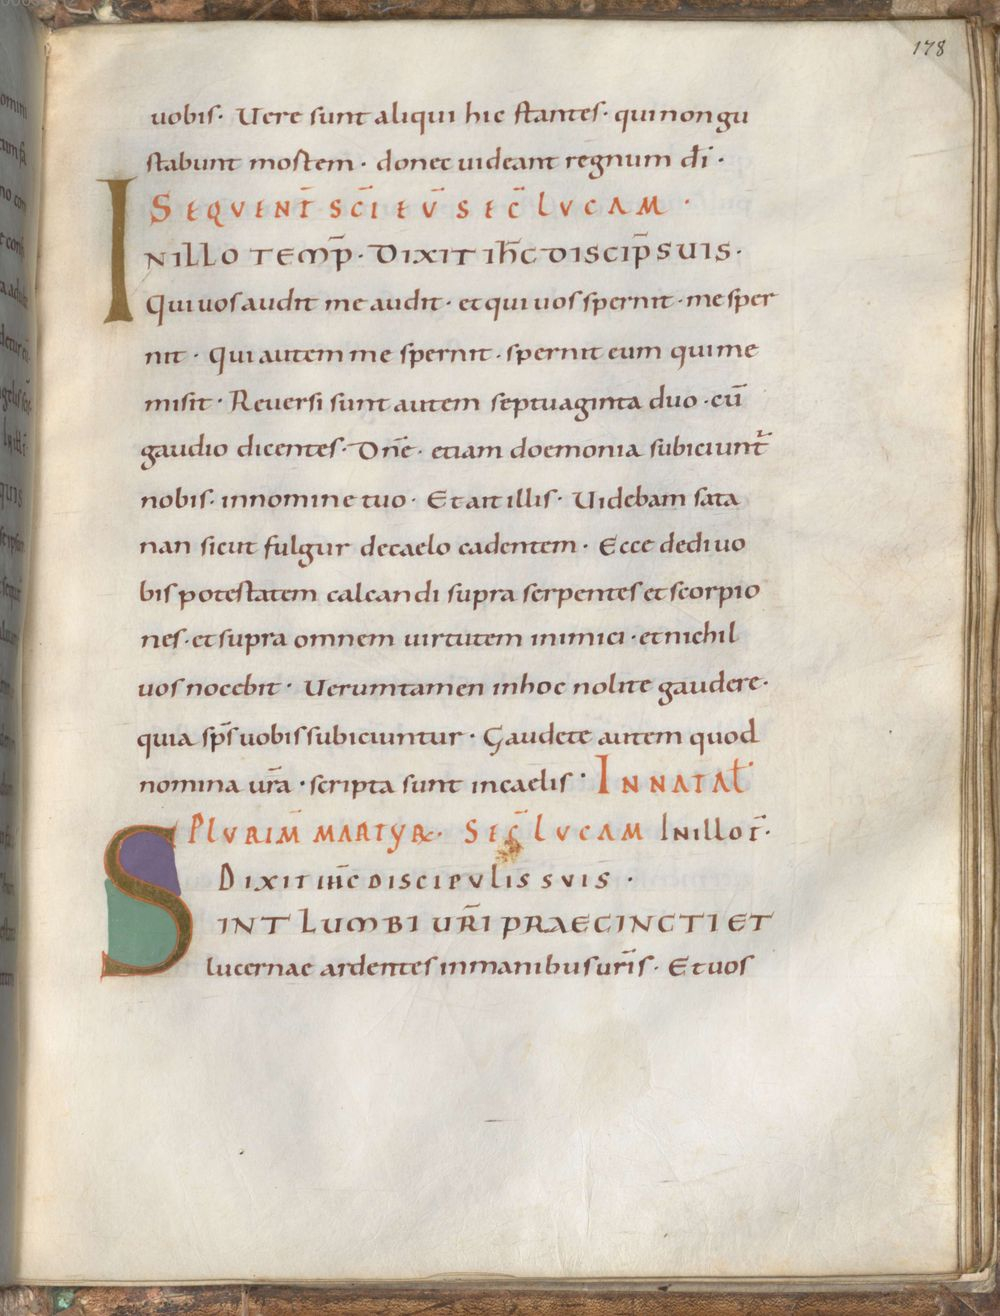 178
uobis· Uere sunt aliqui hic stantes· qui non gu
stabunt mostem· donec uideant regnum dī·
SEQUENT̄ SC̄I EUḠ SEC̄ LUCAM·
IN ILLO TEMP̄· DIXIT IH̄C DISCIP̄ SUIS·
Qui uos audit me audit· et qui uos spernit· me sper
nit· Qui autem me spernit· spernit eum qui me
misit· Reuersi sunt autem septuaginta duo· cū
gaudio dicentes· Dn̄e· etiam doemonia subiciunt̄
nobis· in nomine tuo· Et ait illis· Uidebam sata
nan sicut fulgur de caelo cadentem· Ecce dedi uo
bis potestatem calcandi supra serpentes et scorpio
nes· et supra omnem uirtutem inimici· et nichil
uos nocebit· Uerumtamen in hoc nolite gaudere·
quia sp̄s uobis subiciuntur· Gaudete autem quod
nomina ur̄a· scripta sunt in caelis· IN NATAL̄
PLURIM̄ MARTYR̄· SEC̄ LUCAM IN illo T̄·
DIXIT IH̄C DISCIPULIS SUIS·
SINT LUMBI UR̄I PRAECINCTI ET
lucernae ardentes in manibus ur̄is· Et uos